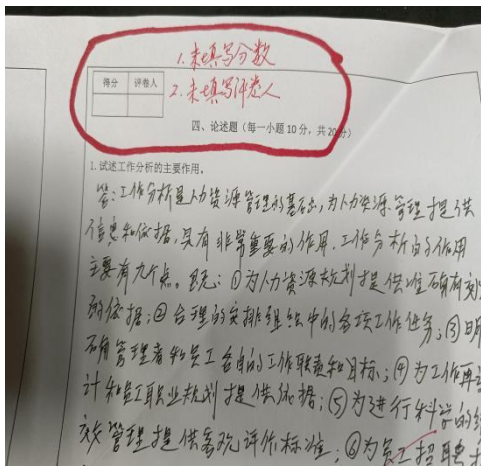 1.未填写分数
得分 评卷人
2.未填写评卷人
四、论述题（每一小题10分，共20分）
1.试述工作分析的主要作用。
答：工作分析是人力资源管理的基础，为人力资源管理提供
信息和依据，具有非常重要的作用。工作分析的作用
主要有九个点。既：①为人力资源规划提供准确有效
的依据；②合理的安排组织中的各项工作任务；③明
确管理者和员工各自的工作职责和目标；④为工作再设
计和员工职业规划提供依据；⑤为进行科学的绩
效管理提供客观评价标准；⑥为员工招聘和